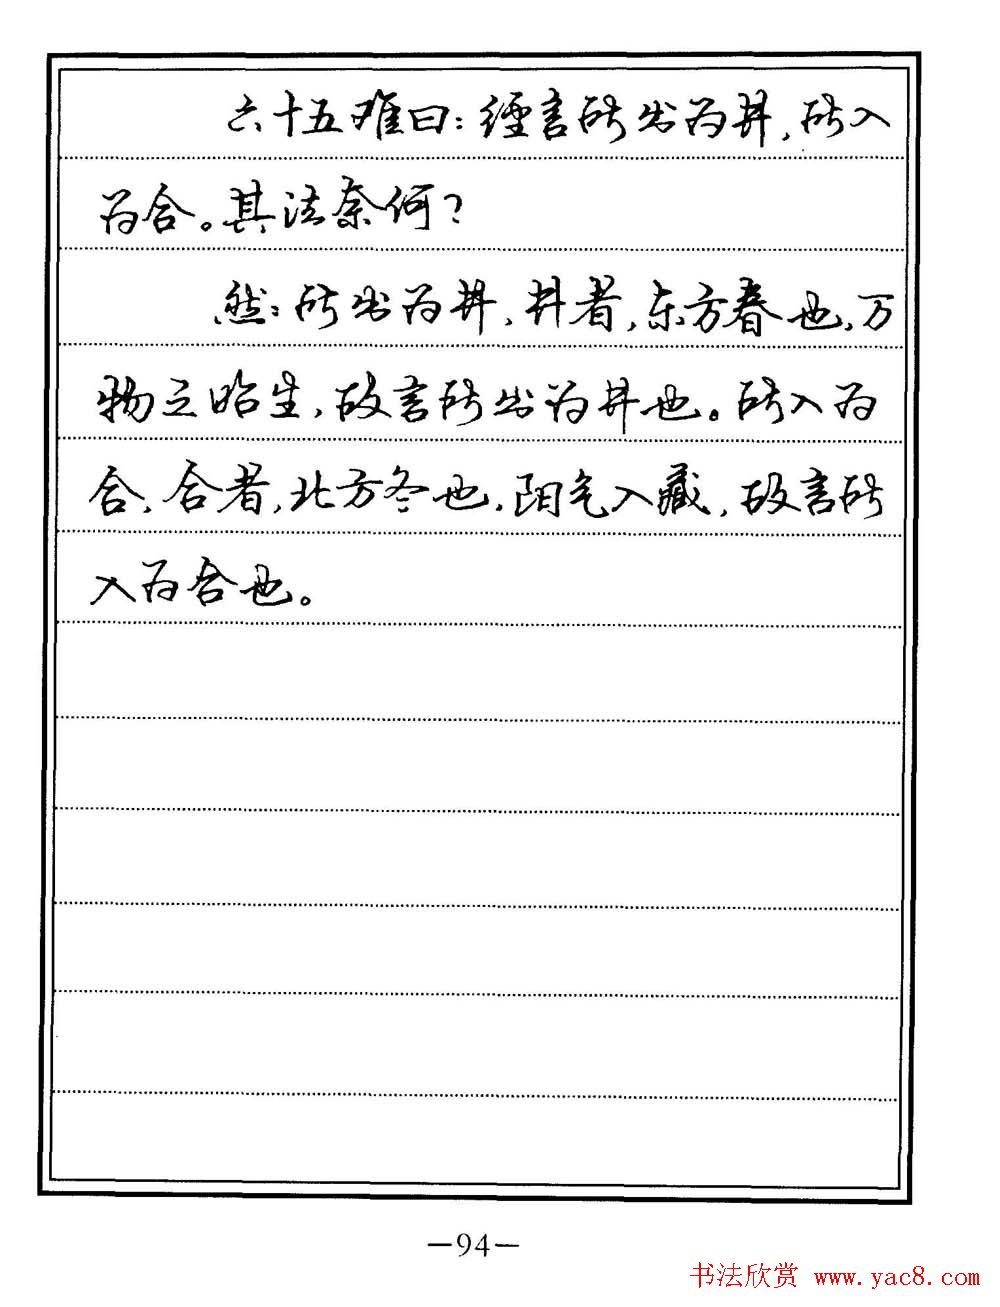 六十五难曰：经言所出为井，所入
为合。其法奈何？
然：所出为井，井者，东方春也，万
物之始生，故言所出为井也。所入为
合，合者，北方冬也，阳气入藏，故言所
入为合也。
—94—
书法欣赏 www.yac8.com